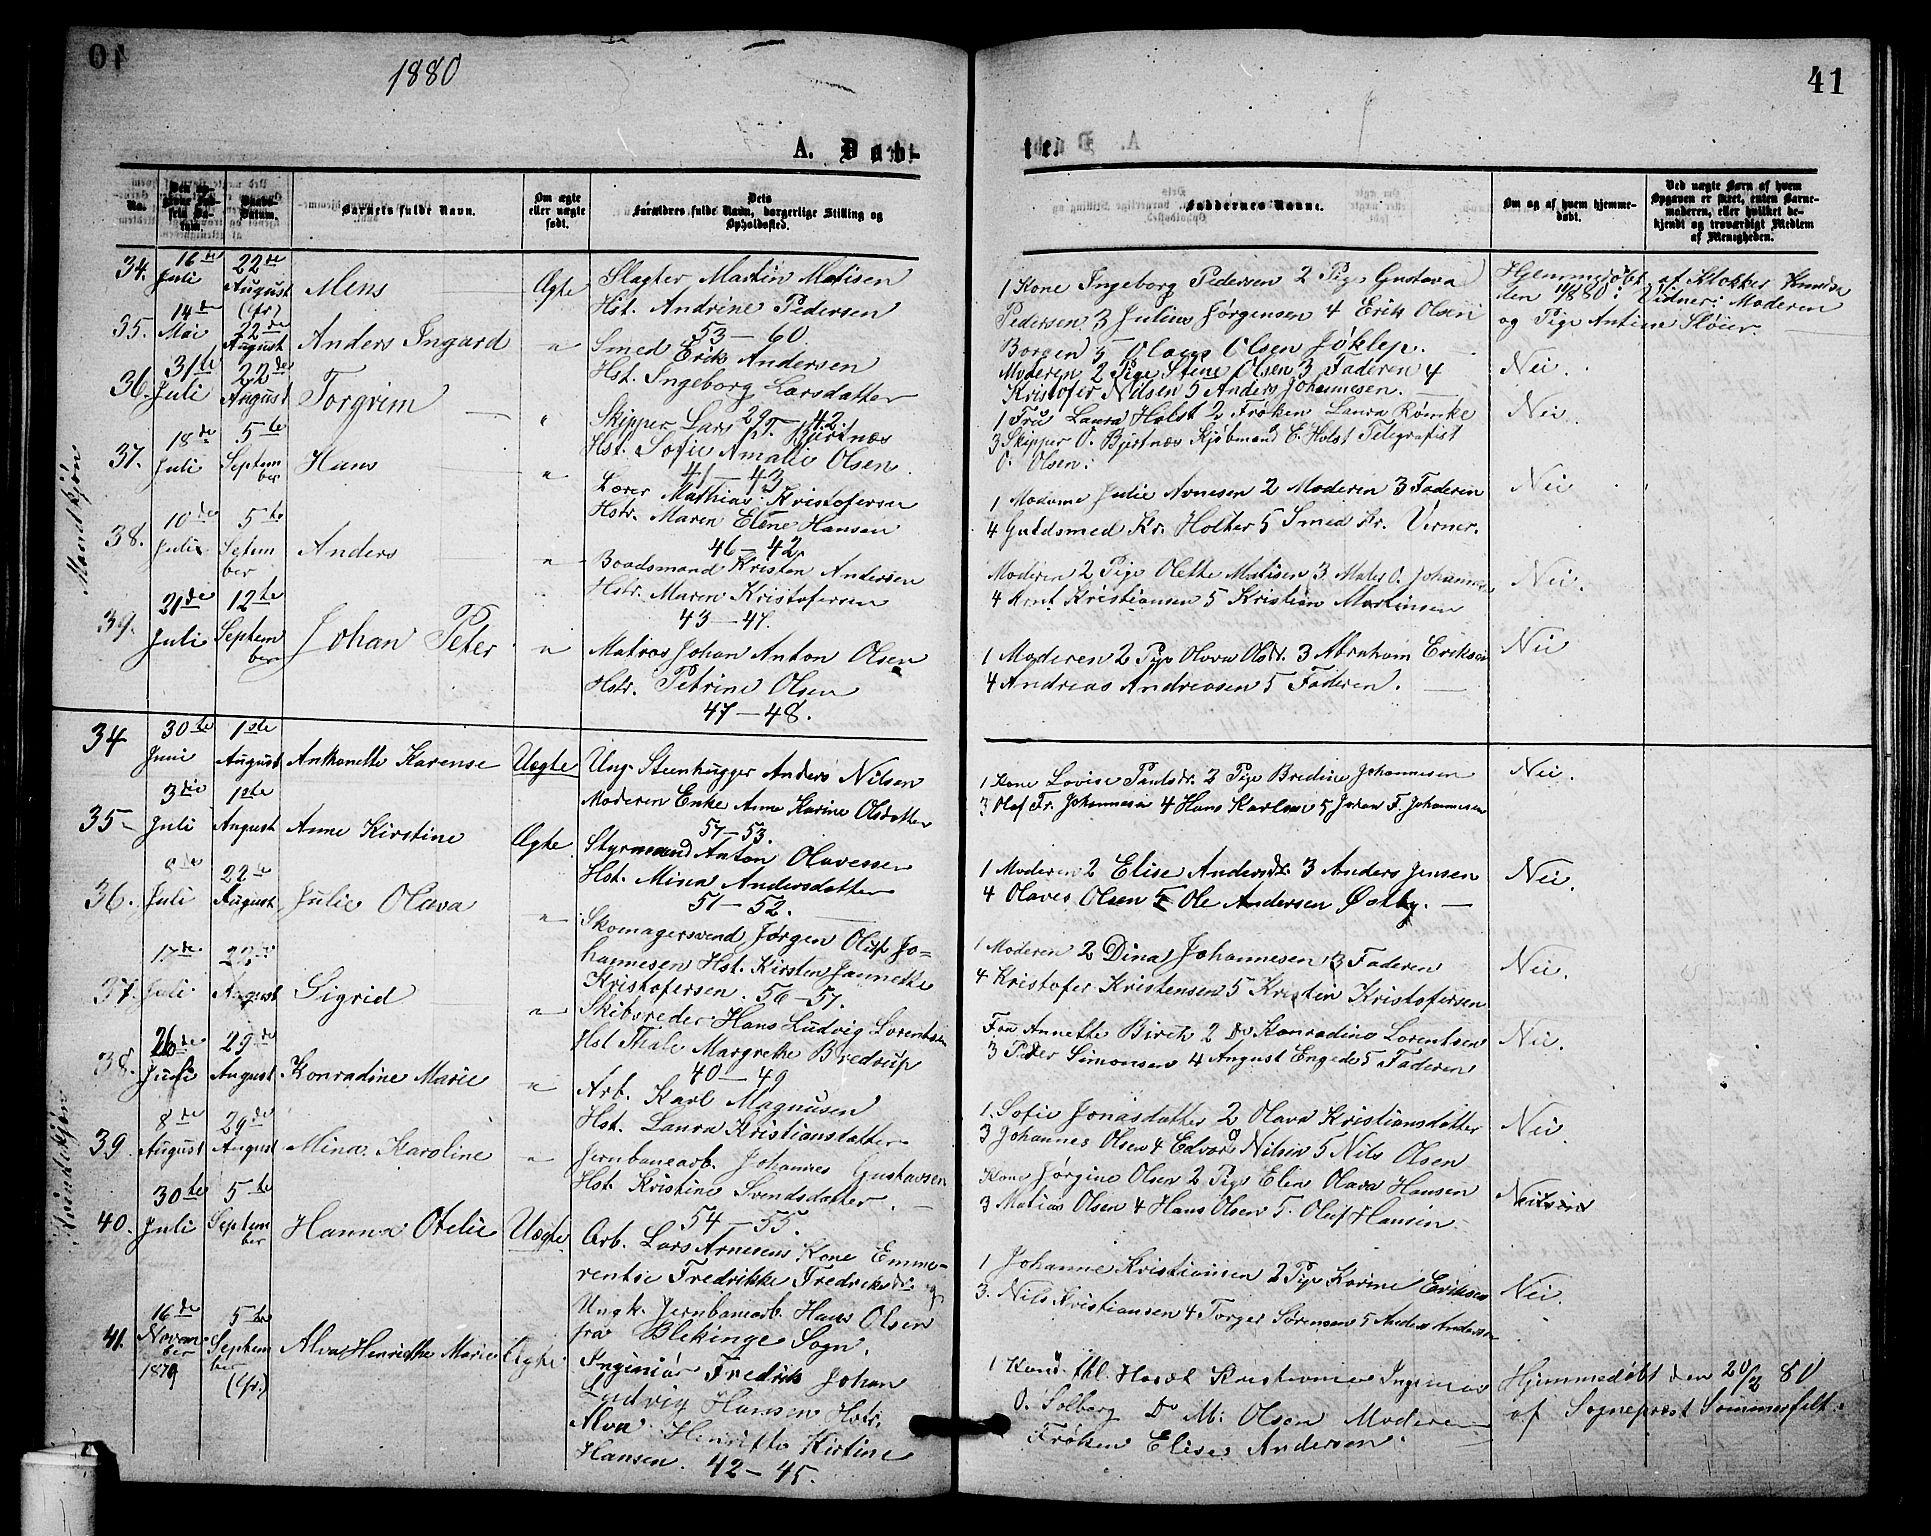 1880
41
A. Døb-
te.
No.
Barnets fulde Navn.
Om ægte eller uægte født.
Forældres fulde Navn, borgerlige Stilling og Opholdssted.
Faddernes Navne.
Om og af hvem hjemmedøbt.
Mandkjøn
34. 16de Juli 22de August (Yr) Mens Ægte Slagter Martin Matisen
Hst. Andrine Pedersen
53 — 60
1 Kone Ingeborg Pedersen 2 Pige Gustava
Pedersen 3 Julius Jørgensen 4 Erik Olsen
Borgen 5 Olaus Olsen Jøklep.
Hjemmedøbt af Klokker
Vidner: Moderen
og Pige
35. 14de Mai 22de August Anders Ingard " Smed Erik Andersen
Hst. Ingeborg Larsdatter
29 — 42.
Moderen 2 Pige Stene Olsen 3 Faderen 4
Kristofer Nilsen 5 Anders Johannesen.
Nei.
36. 31te Juli 22de August Torgrim " Skipper Lars T. Bjertnæs
Hst. Sofie Amalie Olsen.
41 — 43
1 Fru Laura Holst 2 Frøken Laura Rømke
3 Skipper O. Bjertnæs Kjøbmand E. Holst Telegrafist
O. Olsen.
Nei.
37. 18de Juli 5te September Hans " Lærer Mathias Kristofersen
Hstr. Maren Eline Hansen
46 — 42.
1 Madame Julie Arnesen 2 Moderen 3 Faderen
4 Guldsmed Kr. Holter 5 Smed Kr. Verner.
Nei
38. 10de Juli 5te September Anders " Baadsmand Kristen Andersen
Hstr. Maren Kristofersen
43 — 47.
Moderen 2 Pige Olette Matisen 3 Mater O. Johannesen
4 Arnt Kristiansen 5 Kristian Martinsen
Nei.
39. 21de Juli 12te September Johan Peter " Matros Johan Anton Olsen
Hstr. Petrine Olsen
47 — 48.
1 Moderen 2 Pige Olava Olsdr. 3 Abraham Eriksen
4 Andreas Andreasen 5 Faderen.
Nei
Kvindekjøn
34 30te Juni 1ste August Anthonette Karense Uægte Ung. Steenhugger Anders Nilsen
Moderen Enke Anne Karine Olsdatter
51 — 53.
1 Kone Lovise Paulsdr. 2 Pige Bredine Johannesen
3 Olaf Fr. Johannesen 4 Hans Karlsen 5 Johan F. Johannesen
Nei.
35 3die Juli 1ste August Anne Kirstine Ægte Styrmand Anton Olavessen
Hst. Mina Andersdatter
51 — 52.
1 Moderen 2 Elise Andersdr. 3 Anders Jensen
4 Olaves Olsen 5 Ole Andersen Østby.
Nei.
36. Juli 22de August Julie Olava " Skomagersvend Jørgen Oluf Jo-
hannesen Hst. Kirsten Jannette
Kristofersen. 56 — 57.
1 Moderen 2 Dina Johannesen 3 Faderen
4 Kristofer Kristensen 5 Kristin Kristofersen
Nei.
37. 17de Juli August Sigrid " Skibsreder Hans Ludvig Lorentsen
Hst Thale Margrethe Bredrup
40 — 49
Fru Annette Birch 2 Do Konradine Lorentsen
3 Peder Simonsen 4 August Engede 5 Faderen
Nei.
38. 26de Juli 29de August Konradine Marie " Arb. Karl Magnusen
Hst. Laura Kristiansdatter
1. Sofie Jonasdatter 2 Olava Kristiansdatter
3 Johannes Olsen 4 Edvard Nilsen 5 Nils Olsen
Nei.
39. 8de August 29de August Mina Karoline " Jernbanearb. Johannes Gustavsen
Hst. Kristine Svendsdatter.
54 — 55.
Kone Jørgine Olsen 2 Pige Elen Olava Hansen
3 Matias Olsen 4 Hans Olsen 5. Oluf Hansen
40. 30te Juli 5te September Hanna Otelie Uægte Arb. Lars Arnesens Kone Emme-
rentse Fredrikke Fredriksdr. og
Ungk. Jernbanearb. Hans Olsen
fra Blekinge Sogn.
1 Johanne Kristiansen 2 Pige Karine Eriksen
3. Nils Kristiansen 4 Torger Sørensen 5 Anders Andersen
Nei.
41. 16de November 1879 5te September (Yr.) Alva Henriethe Marie Ægte Ingeniør Fredrik Johan
Ludvig Hansen Hstr.
Alva Henriette Kirtine
Hansen. 42 — 45.
O. Solberg Do M. Olsen Moderen
Frøken Elise Andersen.
Hjemmedøbt den 20/2 80
af Sogneprest Sommerfelt.